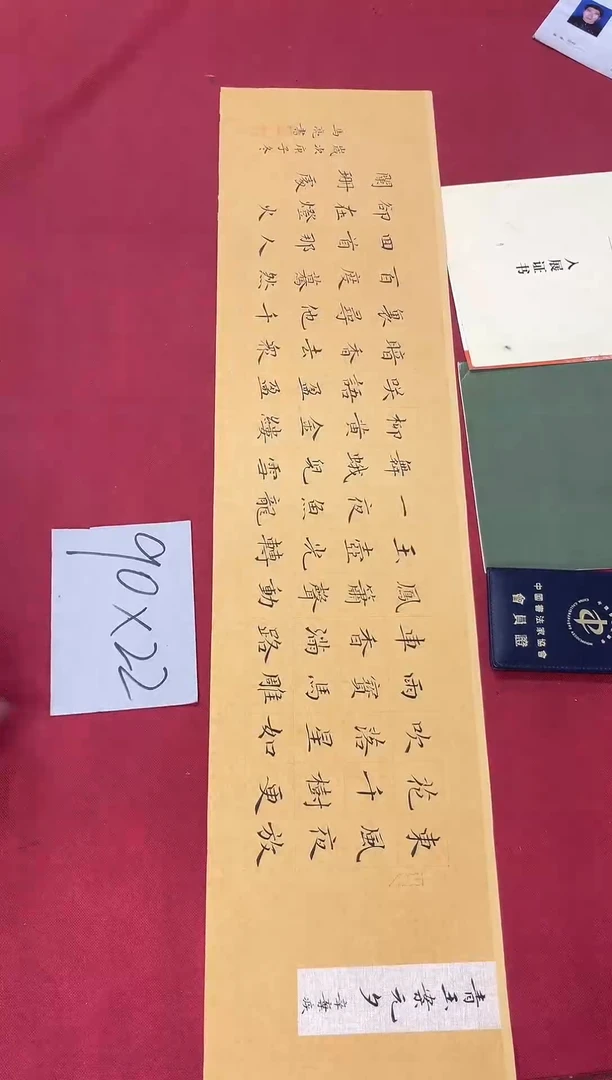 青玉案元夕
辛棄疾
東風夜放
花千樹更
吹落星如
雨寶馬雕
車香滿路
鳳簫聲動
玉壺光轉
一夜魚龍
舞蛾兒雪
柳黃金縷
咲語盈盈
暗香去眾
裏尋他千
百度驀然
回首那人
卻在燈火
闌珊處
歲次庚子冬
馬 書
90×22
入展证书
中國書法家協會
會員證